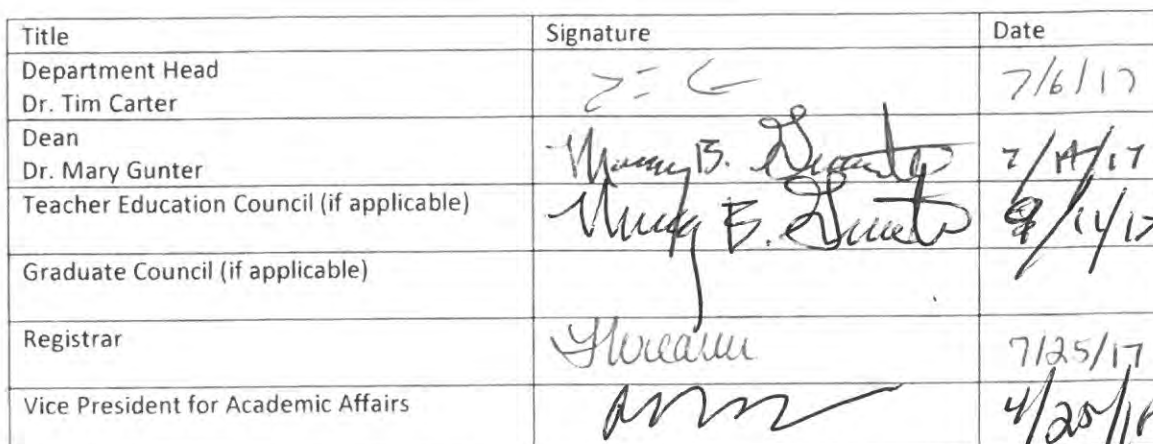 Title Signature Date
Department Head
Dr. Tim Carter 7/6/17
Dean
Dr. Mary Gunter Mary B. Gunter 7/19/17
Teacher Education Council (if applicable) Mary B. Gunter 9/14/17
Graduate Council (if applicable)
Registrar 7/25/17
Vice President for Academic Affairs 4/25/18